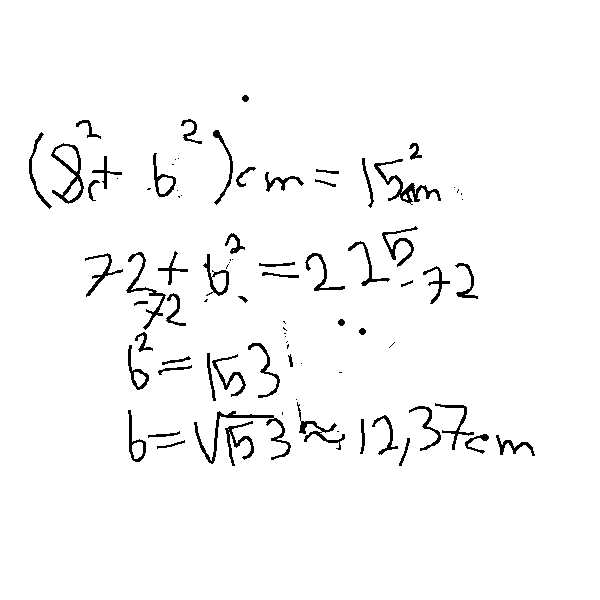 (8²+ b²)cm = 15²cm
72 + b² = 225 -72
-72
b² = 153
b = √153 ≈ 12,37cm